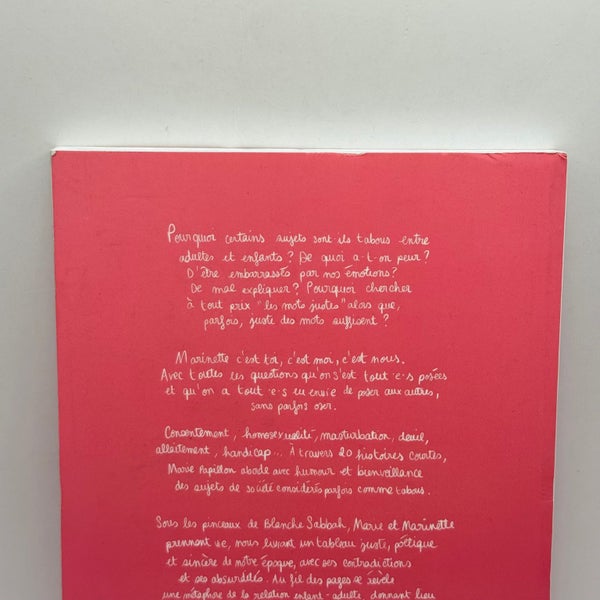 Pourquoi certains sujets sont-ils tabous entre
adultes et enfants ? De quoi a-t-on peur ?
D'être embarrassés par nos émotions ?
De mal expliquer ? Pourquoi chercher
à tout prix "les mots justes" alors que,
parfois, juste des mots suffisent ?
Marinette c'est toi, c'est moi, c'est nous.
Avec toutes ces questions qu'on s'est tout·e·s posées
et qu'on a tout·e·s eu envie de poser aux autres,
sans parfois oser.
Consentement, homosexualité, masturbation, deuil,
allaitement, handicap... À travers 20 histoires courtes,
Marie Papillon aborde avec humour et bienveillance
des sujets de société considérés parfois comme tabous.
Sous les pinceaux de Blanche Sabbah, Marie et Marinette
prennent vie, nous livrant un tableau juste, poétique
et sincère de notre époque, avec ses contradictions
et ses absurdités. Au fil des pages se révèle
une métaphore de la relation enfant-adulte, donnant lieu